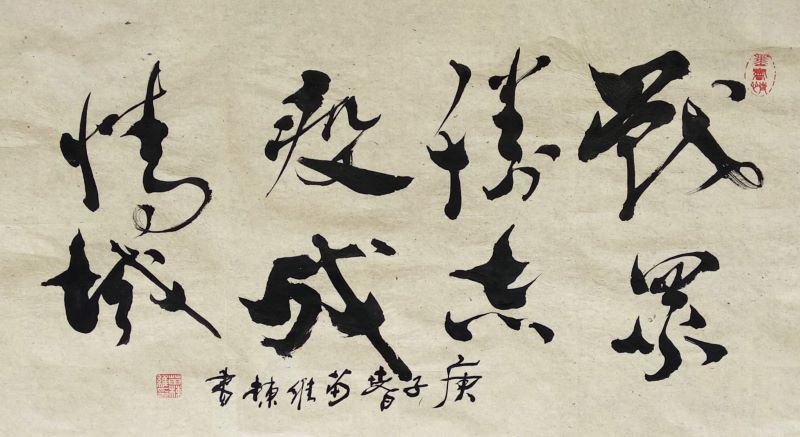 戰勝疫情
眾志成城
庚子春苗维棟書